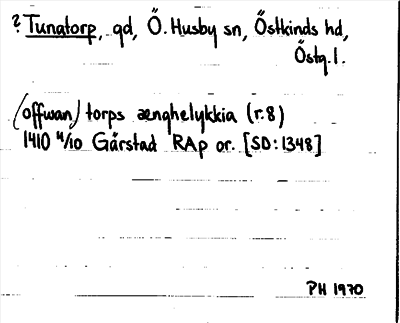 ? Tunatorp, gd, Ö. Husby sn, Östkinds hd,
Östg. l.
(offwan) torps ænghelykkia (r. 8)
1410 4/10 Gårstad RAp or. [SD: 1348]
PH 1970